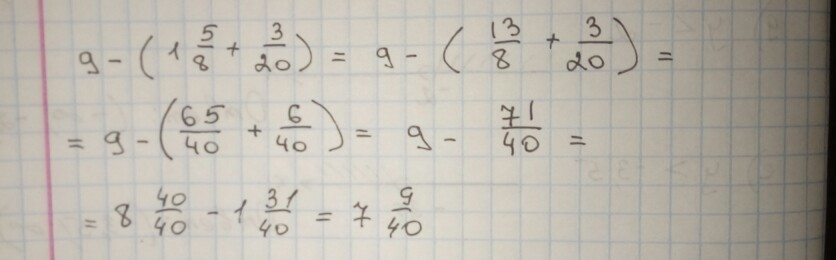 9 - (1 5/8 + 3/20) = 9 - (13/8 + 3/20) =
= 9 - (65/40 + 6/40) = 9 - 71/40 =
= 8 40/40 - 1 31/40 = 7 9/40